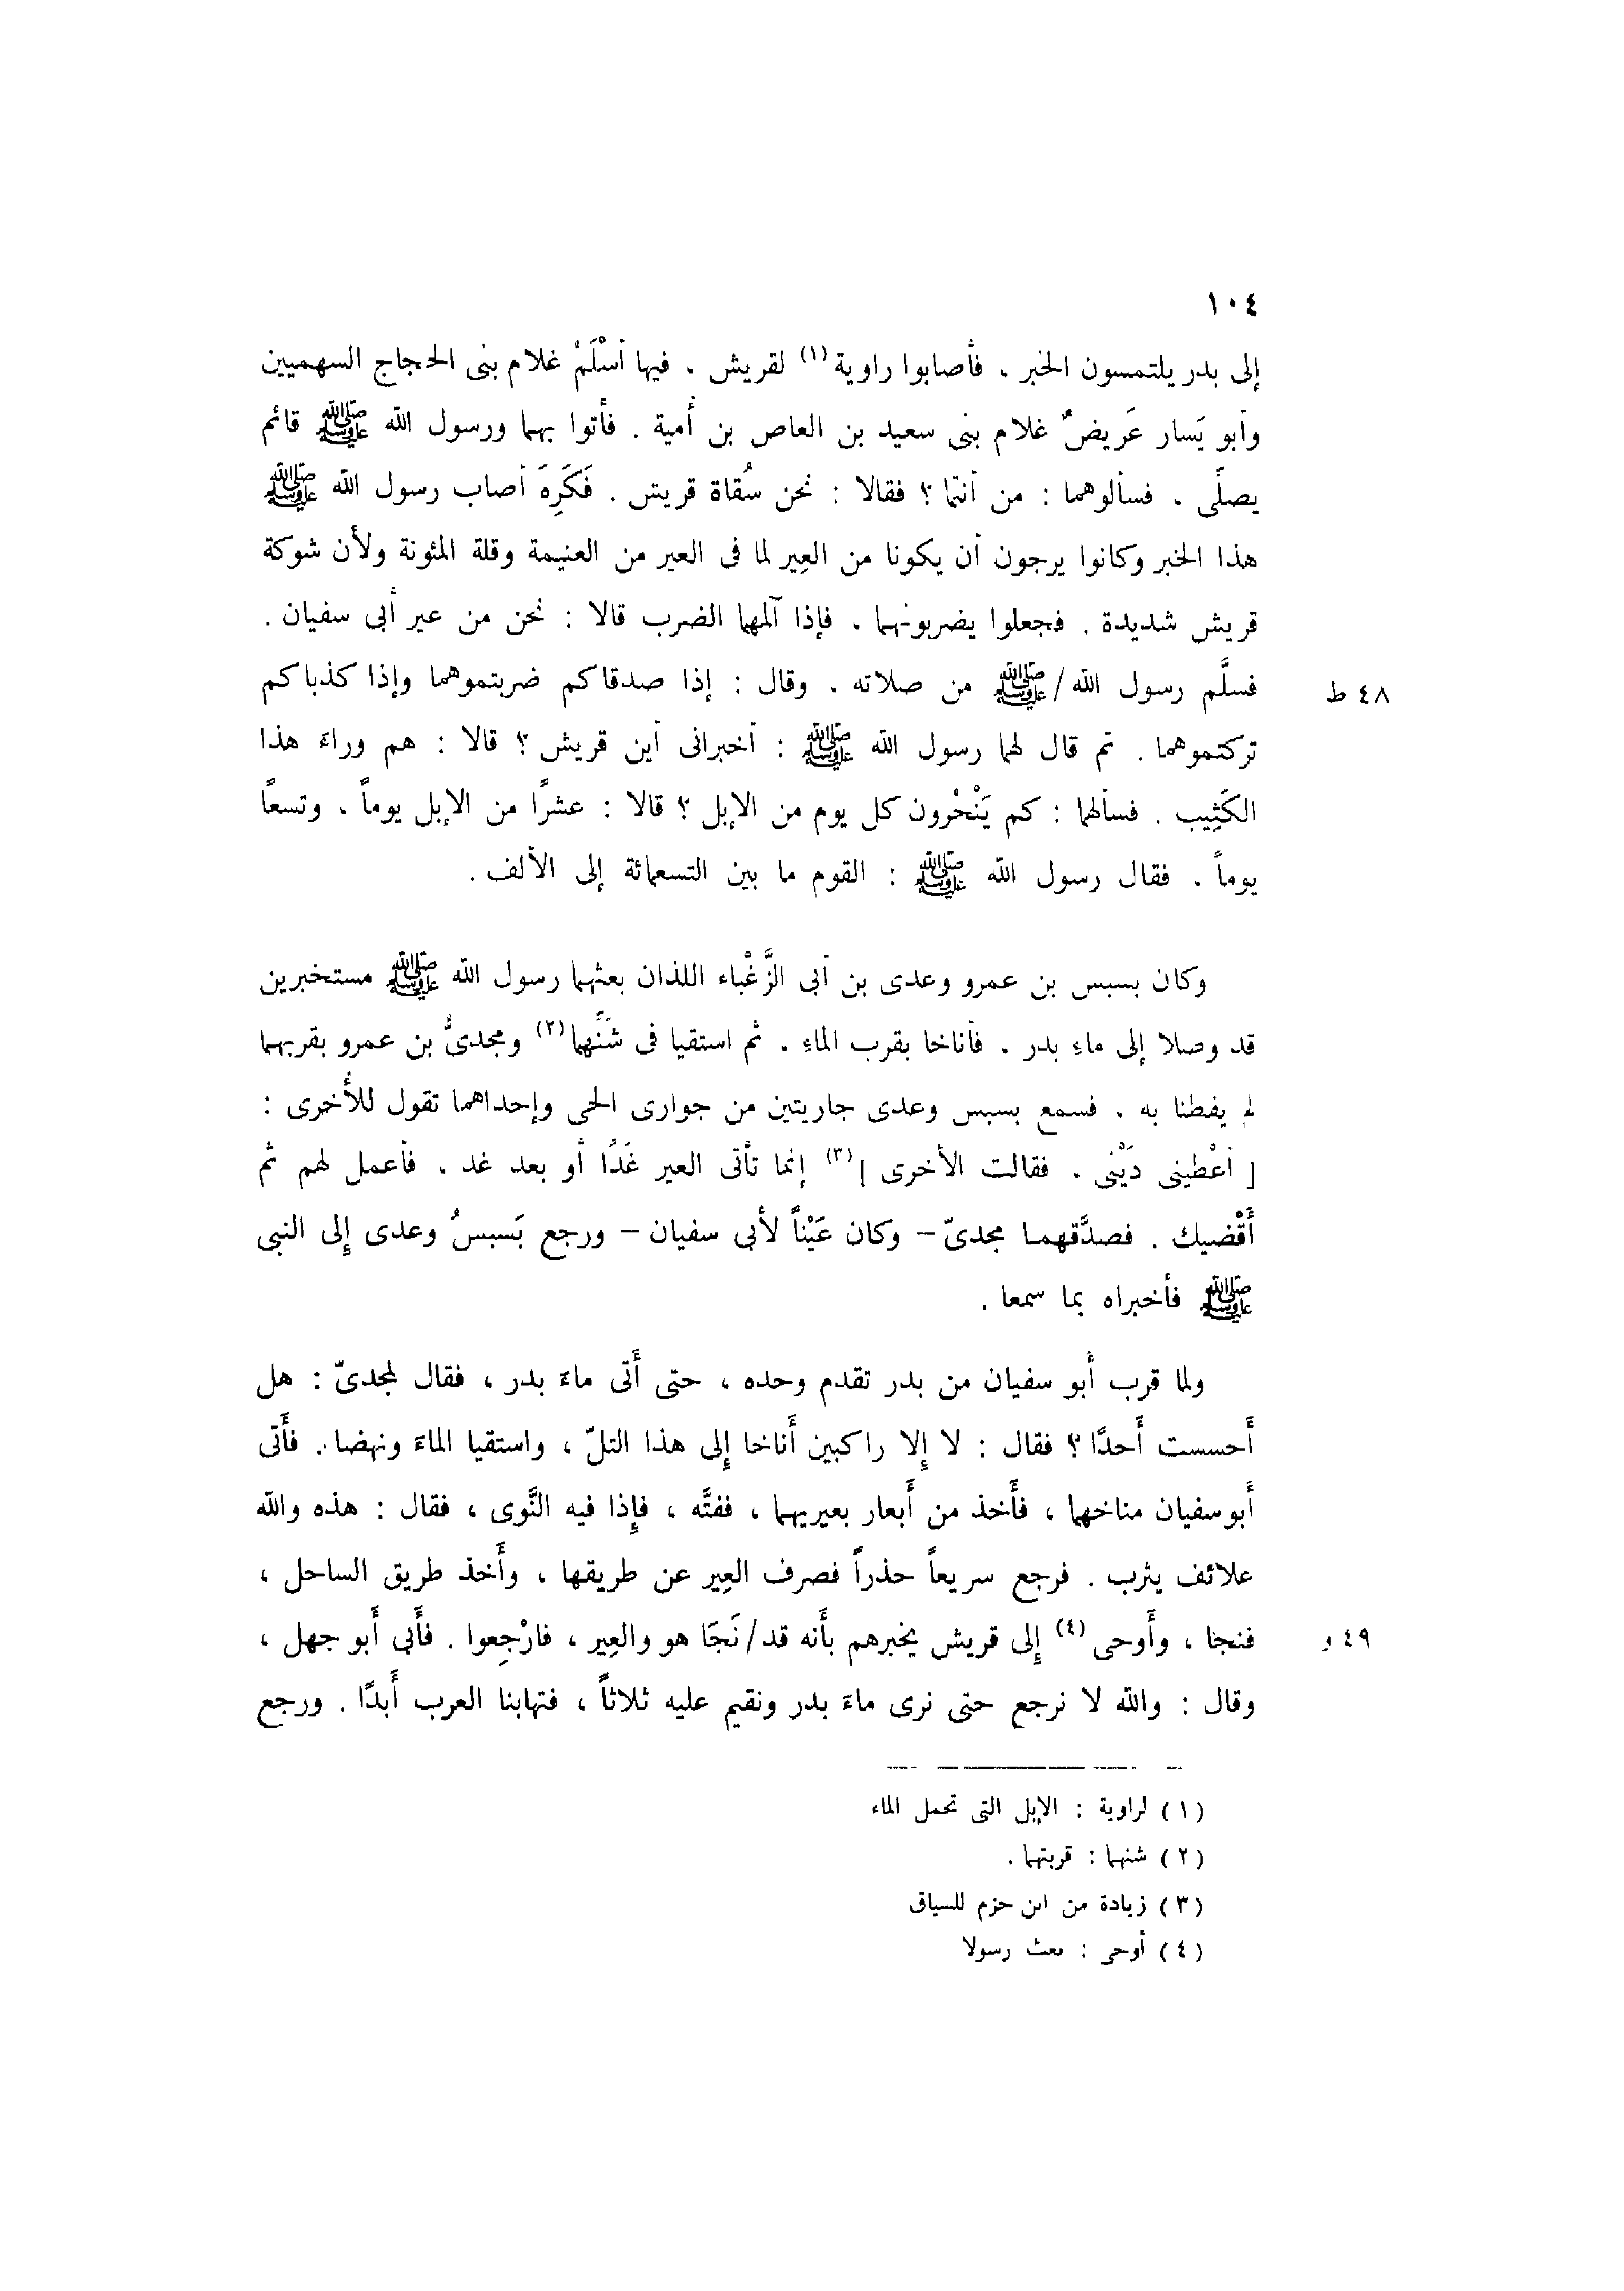 ١٠٤
إلى بدر يلتمسون الخبر ، فأصابوا راوية (١) لقريش ، فيها أسْلَمْ غلام بنى الحجاج السهميين
وأبو يَسار عَريضٌ غلام بنى سعيد بن العاص بن أُمية . فأتوا بهما ورسول الله ﷺ قائم
يصلَّى ، فسألوهما : من أنتما ؟ فقالا : نحن سُقاة قريش . فَكَرِهَ أصاب رسول الله ﷺ
هذا الخبر وكانوا يرجون أن يكونا من العِير لما فى العير من الغنيمة وقلة المئونة ولأن شوكة
قريش شديدة . فجعلوا يضربونهما ، فإذا آلمهما الضرب قالا : نحن من عير أبى سفيان .
فسلَّم رسول الله / ﷺ من صلاته ، وقال : إذا صدقاكم ضربتموهما وإذا كذباكم
٤٨ ط
تركتموهما . ثم قال لهما رسول الله ﷺ : أخبرانى أين قريش ؟ قالا : هم وراءَ هذا
الكَثِيب . فسألهما : كم يَنْحْرون كل يوم من الإبل ؟ قالا : عشرًا من الإبل يوماً ، وتسعًا
يوماً . فقال رسول الله ﷺ : القوم ما بين التسعمائة إلى الألف .
وكان بسبس بن عمرو وعدى بن أبى الزَّغْباء اللذان بعثهما رسول الله ﷺ مستخبرين
قد وصلا إلى ماءِ بدر . فأناخا بقرب الماءِ ، ثم استقيا فى شَنَّهما (٢) ومجدىُّ بن عمرو بقربهما
لم يفطنا به . فسمع بسبس وعدى جاريتين من جوارى الحى وإحداهما تقول للأُخرى :
[ أعْطينى دَيْنى . فقالت الأخرى ] (٣) إنما تأتى العير غَدًا أو بعد غد ، فأعمل لهم ثم
أَقْضيك . فصدَّقهما مجدىّ – وكان عَيْناً لأبى سفيان – ورجع بَسبسُ وعدى إلى النبى
ﷺ فأخبراه بما سمعا .
ولما قرب أبو سفيان من بدر تقدم وحده ، حتى أَتى ماءَ بدر ، فقال لمجدىّ : هل
أَحسست أَحدًا ؟ فقال : لا إلا راكبين أَناخا إلى هذا التلّ ، واستقيا الماءَ ونهضا . فأَتى
أَبوسفيان مناخهما ، فأَخذ من أَبعار بعيريهما ، ففتَّه ، فإذا فيه النَّوى ، فقال : هذه والله
علائف يثرب . فرجع سريعاً حذراً فصرف العِير عن طريقها ، وأَخذ طريق الساحل ،
فنجا ، وأَوحى (٤) إلى قريش يخبرهم بأَنه قد / نَجَا هو والعِير ، فارْجِعوا . فأَبى أَبو جهل ،
٤٩ و
وقال : والله لا نرجع حتى نرى ماءَ بدر ونقيم عليه ثلاثاً ، فتهابنا العرب أَبدًا . ورجع
(١) لراوية : الإبل التى تحمل الماء
(٢) شنهما : قربتهما .
(٣) زيادة من ابن حزم للسياق
(٤) أوحى : بعث رسولا